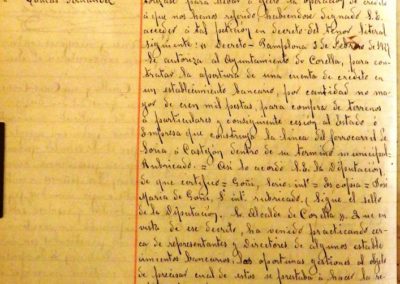 Tomás Fernández
solicitase para llevar a efecto la operación de crédito
á que nos hemos referido habiéndose dignado S.E.
acceder á tal petición en decreto del tenor literal
siguiente: « Decreto = Pamplona 2 de Febrero de
Se autoriza al Ayuntamiento de Corella, para con-
tratar la apertura de una cuenta de crédito en
un establecimiento bancario, por cantidad no ma-
yor de cien mil pesetas, para compra de terrenos
a particulares y consiguiente cesión al Estado ó
Empresa que construya la línea del ferrocarril de
Soria, á Castejón dentro de su término municipal
Rubricado. = Así lo acordó S.E. la Diputación,
de que certifico = Goñi, Srio. intº = Es copia = José
María de Goñi, S. int. rubricado. (Sigue el sello
de la Diputación, Sr. Alcalde de Corella ». Que en
vista de ese decreto, ha venido practicando cer-
ca de representantes y Directores de algunos estable-
cimientos bancarios las oportunas gestiones al objeto
de precisar cual de estos se prestaba á hacer la